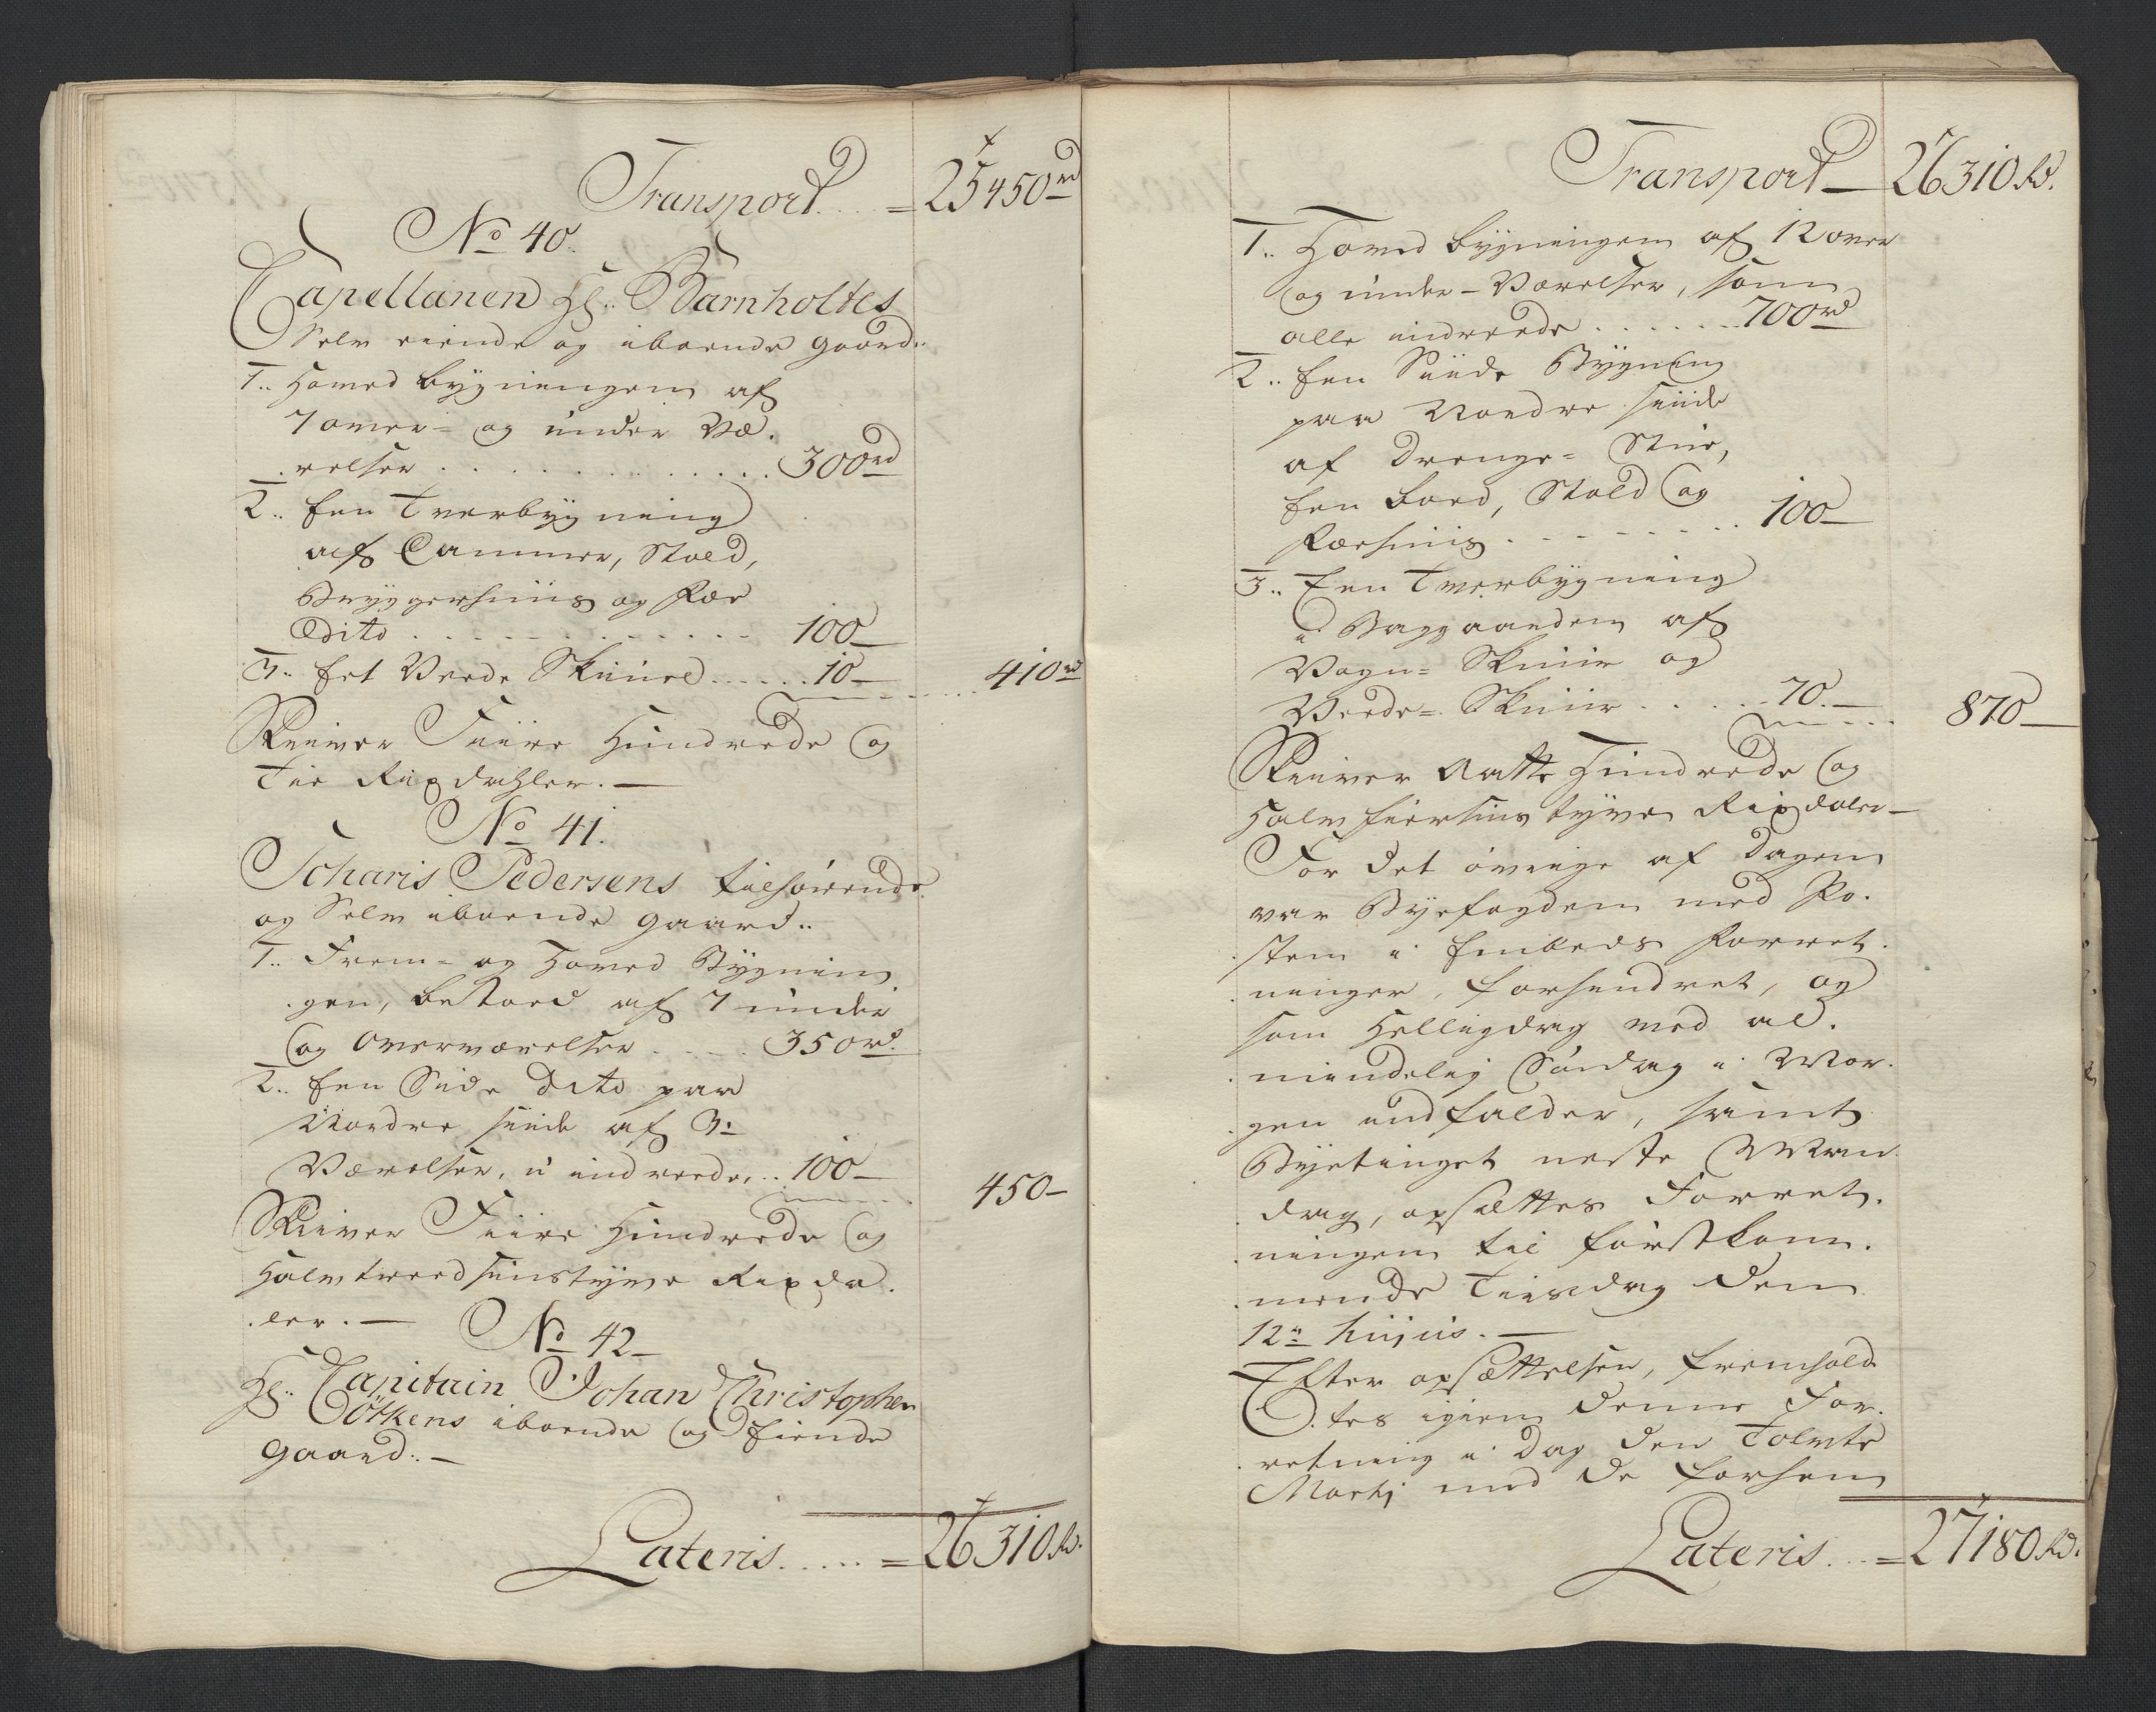 Transport.... = 25450rd
No 40.
Capellanen Hr. Barnholtes
Selv eiende og iboende gaard..
1.. Hoved bygningen af
7 over- og under Væ.
.relser . . . . . . . 300rd
2.. Een Tverbygning
af Cammer, Stald,
Bryggerhuus og Fær
Dito . . . . . . . 100 —
3.. Eet Veede Skuured . . . . . 10 — . . . . 410rd
Skriver Fiire Hundrede og
Tie Rixdahler. —
No 41.
Zcharis Pedersens tilhørende
og Selv iboende gaard..
1.. Frem- og Hoved Bygnin
.gen, bestaard af 7 under
og Overværelser . . . . 350rd.
2.. Een Side Dito paa
Nordre siide af 3:
Værelser, u indreede, . . 100 — 450 —
Skriver Fiire Hundrede og
Halvtreedsinstyve Rixda.
.ler. —
No 42 —
Hr. Capitain Johan Christopher
Götkens iboende og Eiende
gaard. —
Lateris. . . . . = 26310 Rd.
Transport — 26310 Rd.
1.. Hoved bygningen af 12 over
og under- Værelser, som
alle indreede . . . . . . 700rd
2.. Een Siide Bygning
paa Nordre siide
af Drenge- Stue,
Een boed, Stald og
Færhuus . . . . . . . 100 —
3.. Een Tverbygning
i Baggaarden af
Vogn- Skuur og
Veede- Skuur . . . . . 70. — 870 —
Skriver Aatte Hundrede og
Halvfiersinstyve Rixdaler —
For det øvrige af Dagen
var Byefogden med Po.
.sten i Embeds Forret.
.ninger, forhindret, og
som Helligdag med al.
.mindelig Søndag i Mor.
.gen indfalder, samt
Byetinget neste Man.
.dag, opsættes Forret.
.ningen til førstkom.
.mende Tiisdag den
12te hujus. —
Efter opsættelsen, fremhold
.tes igien denne For.
.retning i Dag den Tolvte
Martij med de forhen
Lateris. . . = 27180 Rd.